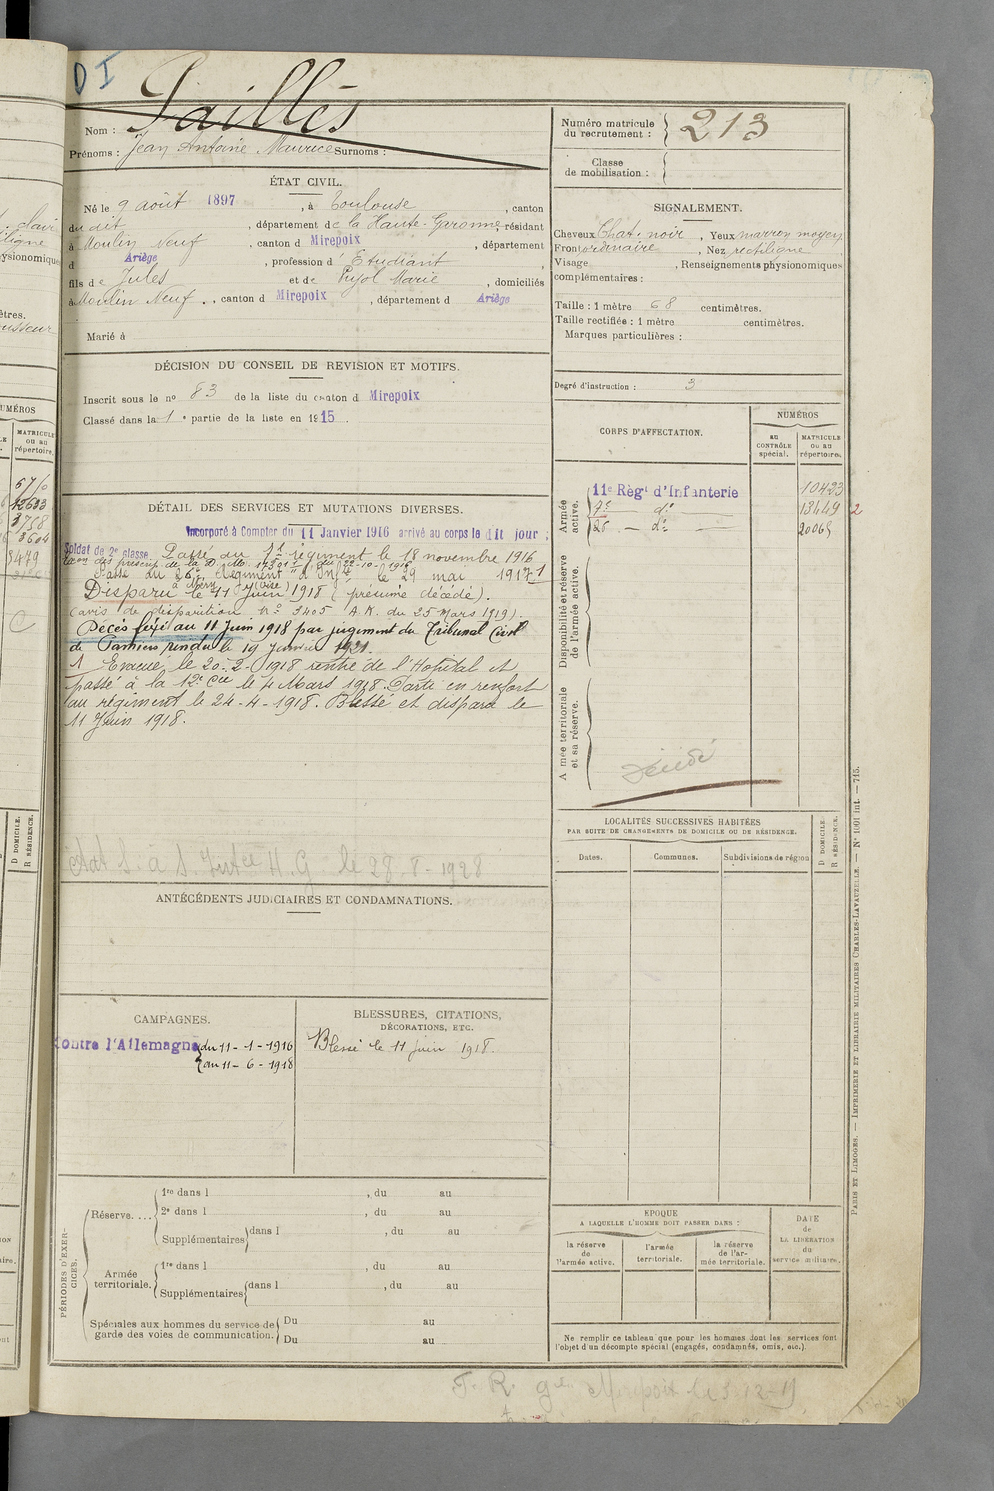 D I
Nom : Jaillès
Prénoms : Jean Antoine Maurice Surnoms :
Numéro matricule
du recrutement : 213
Classe
de mobilisation :
ÉTAT CIVIL.
Né le 9 août 1897, à Toulouse, canton
du dit, département de la Haute-Garonne, résidant
à Moulin Neuf, canton d Mirepoix, département
d Ariège, profession d'Etudiant
fils de Jules et de Pujol Marie, domiciliés
à Moulin Neuf, canton d Mirepoix, département d Ariège
Marié à
SIGNALEMENT.
Cheveux Chat. noir, Yeux marron moyen
Front ordinaire, Nez rectiligne
Visage , Renseignements physionomiques
complémentaires :
Taille : 1 mètre 68 centimètres.
Taille rectifiée : 1 mètre centimètres.
Marques particulières :
Degré d'instruction : 3
DÉCISION DU CONSEIL DE REVISION ET MOTIFS.
Inscrit sous le nº 83 de la liste du canton d Mirepoix
Classé dans la 1e partie de la liste en 1915.
DÉTAIL DES SERVICES ET MUTATIONS DIVERSES.
Incorporé à Compter du 11 Janvier 1916 arrivé au corps le dit jour ;
Soldat de 2e classe. Passé au régiment le 18 novembre 1916
Passé au 26e Régiment d'Infie le 29 mai 1917 1
Disparu le 11 Juin 1918 (présumé décédé).
(avis de disparition Nº 3405 A.K. du 25 Mars 1919)
Décès fixé au 11 Juin 1918 par jugement du Tribunal Civil
de Pamiers rendu le 19 Janvier 1921.
1 Evacué le 20-2-1918 rentré de l'Hopital et
passé à la 12e Cie le 4 Mars 1918. Parti en renfort
au régiment le 24-4-1918. Blessé et disparu le
11 Juin 1918.
le 28-8-1928
CORPS D'AFFECTATION.
NUMÉROS
AU
CONTRÔLE
spécial.
MATRICULE
OU AU
répertoire.
Armée
active.
11e Régt d'Infanterie 10423
7e do 13449 2
26 do 20065
Disponibilité et réserve
de l'armée active.
Armée territoriale
et sa réserve.
Décédé
LOCALITÉS SUCCESSIVES HABITÉES
PAR SUITE DE CHANGEMENTS DE DOMICILE OU DE RÉSIDENCE.
Dates.
Communes.
Subdivisions de région
D DOMICILE.
R RÉSIDENCE.
ANTÉCÉDENTS JUDICIAIRES ET CONDAMNATIONS.
CAMPAGNES.
Contre l'Allemagne du 11-1-1916
au 11-6-1918
BLESSURES, CITATIONS,
DÉCORATIONS, ETC.
Blessé le 11 juin 1918.
PÉRIODES D'EXERCICES.
Réserve....
1re dans l , du au
2e dans l , du au
Supplémentaires dans l , du au
Armée
territoriale.
1re dans l , du au
Supplémentaires dans l , du au
Spéciales aux hommes du service de
garde des voies de communication.
Du au
Du au
EPOQUE
A LAQUELLE L'HOMME DOIT PASSER DANS :
la réserve
de
l'armée active.
l'armée
territoriale.
la réserve
de l'ar-
mée territoriale.
DATE
de
LA LIBÉRATION
du
service militaire.
Ne remplir ce tableau que pour les hommes dont les services font
l'objet d'un décompte spécial (engagés, condamnés, omis, etc.).
PARIS ET LIMOGES. — IMPRIMERIE ET LIBRAIRIE MILITAIRES CHARLES-LAVAUZELLE. — Nº 1001 int. — 715.